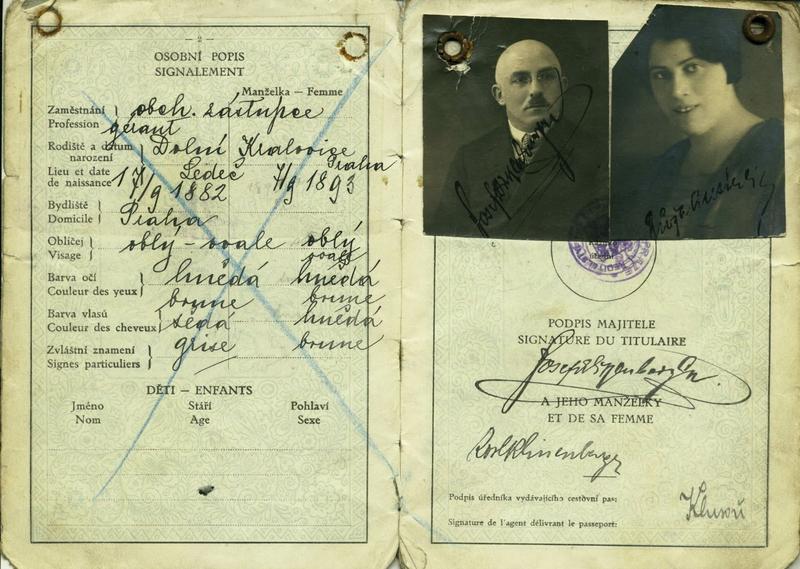 — 2 —
OSOBNÍ POPIS
SIGNALEMENT
Manželka – Femme
Zaměstnání
Profession
obch. zástupce
gérant
Rodiště a datum
narození
Lieu et date
de naissance
Dolní Kralovice Praha
Ledeč
17/9 1882 7/9 1893
Bydliště
Domicile
Praha
Obličej
Visage
oblý – ovale oblý
ovale
Barva očí
Couleur des yeux
hnědá hnědá
brune brune
Barva vlasů
Couleur des cheveux
šedá hnědá
grise brune
Zvláštní znamení
Signes particuliers
DĚTI – ENFANTS
Jméno Stáří Pohlaví
Nom Age Sexe
PODPIS MAJITELE
SIGNATURE DU TITULAIRE
A JEHO MANŽELKY
ET DE SA FEMME
Podpis úředníka vydávajícího cestovní pas:
Signature de l'agent délivrant le passeport: